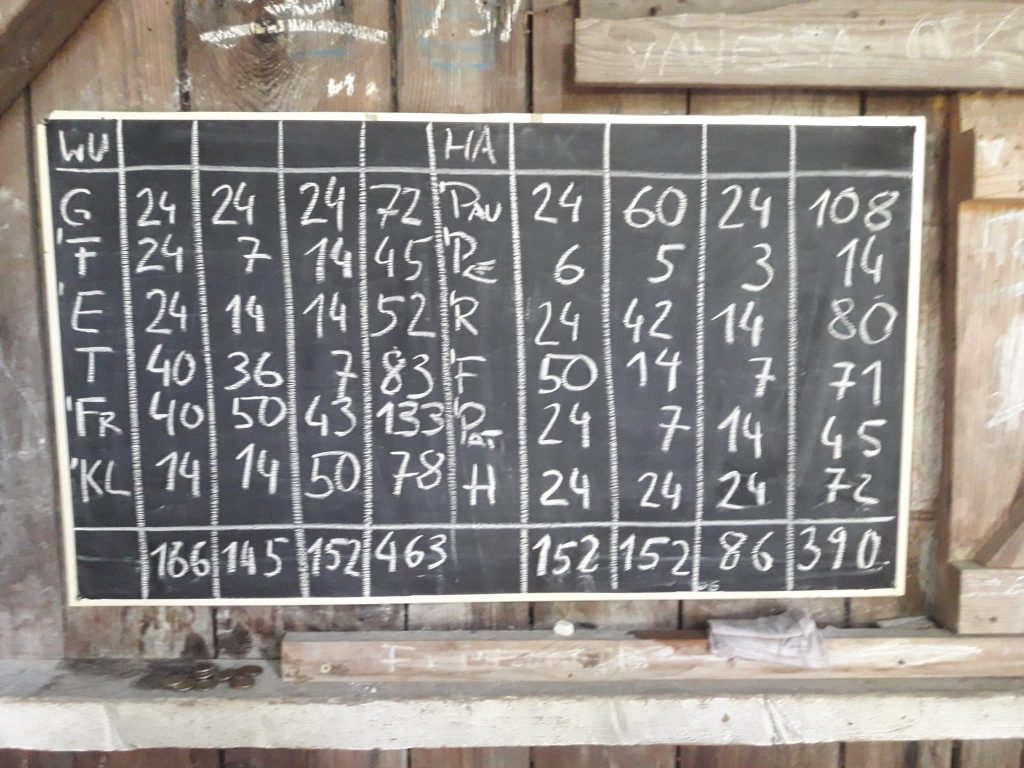 WU HA
G 24 24 24 72 PAU 24 60 24 108
'F 24 7 14 45 'PE 6 5 3 14
'E 24 14 14 52 'R 24 42 14 80
T 40 36 7 83 'F 50 14 7 71
'FR 40 50 43 133 'PAT 24 7 14 45
'KL 14 14 50 78 H 24 24 24 72
166 145 152 463 152 152 86 390